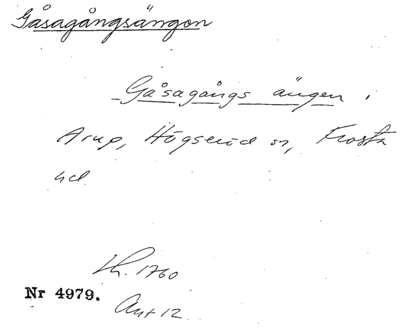 Gåsagångsängen
Gåsagångs ängen,
Arup, Högseröd sn, Frosta
hd
Lh. 1760
Nr 4979.
Ant 12